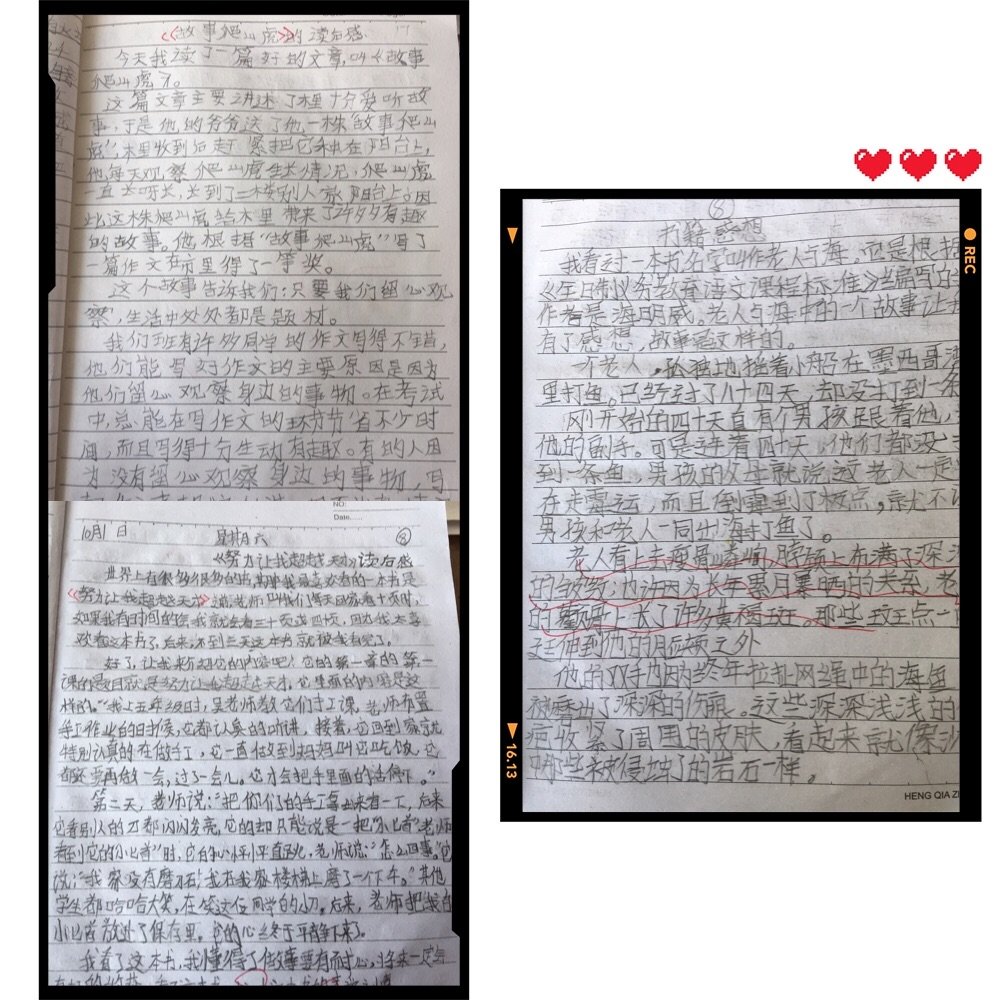 《故事爬山虎》的读后感
今天我读了一篇好的文章,叫《故事
爬山虎》。
这篇文章主要讲述了木里十分爱听故
事,于是他的爷爷送了他一株"故事爬山
虎",木里收到后赶紧把它种在阳台上,
他每天观察爬山虎生长情况,爬山虎
一直长呀长,长到了三楼别人家阳台上。因
此这株爬山虎给木里带来了许多有趣
的故事。他根据"故事爬山虎"写了
一篇作文在市里得了一等奖。
这个故事告诉我们:只要我们细心观
察,生活中处处都是题材。
我们班有许多同学的作文写得不错,
他们能写好作文的主要原因是因为
他们留心观察身边的事物。在考试
中,总能在写作文的环节省不少时
间,而且写得十分生动有趣。有的人因
为没有留心观察身边的事物,写
NO:
Date
10月1日 星期六 ⑧
《努力让我超越天才》读后感
世界上有很多很多的书,其中我最喜欢看的一本书是
《努力让我超越天才》老师叫我们每天回家看十页时,
如果我有时间的话我就会看三十页或四十页,因为我太喜
欢看这本书了,后来,不到三天这本书就被我看完了。
好了,让我来介绍它的内容吧!它的第一章的第一
课的题目就是努力让我超越天才。它里面的内容是这
样的。"我上五年级时,吴老师教它们手工课,老师布置
手工作业的时候,它都认真的听讲,接着,它回到家就
特别认真的在做手工,它一直做到妈妈叫它吃饭,它
都还要再做一会,过了一会儿。它才会把手里面的活停下。"
第二天,老师说:"把你们的手工拿出来看一下,后来
它看别人的刀都闪闪发亮,它的却只能说是一把"小匕首"老师
看到它的小匕首"时,它的心怦怦直跳,老师说:"怎么回事。"它
说:"我家没有磨石,我在我家楼梯上磨了一个下午。"其他
学生都哈哈大笑,在笑这位同学的刀。后来,老师把我的
小匕首放进了保存里。它的心终于平静下来了。
我看了这本书,我懂得了做事要有耐心,将来一定会
⑧
书籍感想
我看过一本书名字叫作老人与海,它是根据
《全日制义务教育语文课程标准》编写的
作者是海明威,老人与海中的一个故事让我
有了感想,故事是这样的。
一个老人,孤独地撑着小船在墨西哥湾
里打鱼。已经过了八十四天,却没打到一条
刚开始的四十天自有个男孩跟着他,
他的副手。可是连着四十天,他们都没
到一条鱼,男孩的父母就说这老人一定
在走霉运,而且倒霉到了极点,就不
男孩和老人一同出海打鱼了。
老人看上去瘦骨嶙峋,脖颈上布满了深深
的皱纹,也许因为长年累月暴晒的关系,老
的颧骨上长了许多黄褐斑,那些斑点一
延伸到他的脖颈之外
他的双手因为终年拉扯网绳中的海鱼
被磨出了深深的伤痕。这些深深浅浅的
疤收紧了周围的皮肤,看起来就像沙
中那些被侵蚀了的岩石一样。
REC
16.13
HENG QIA